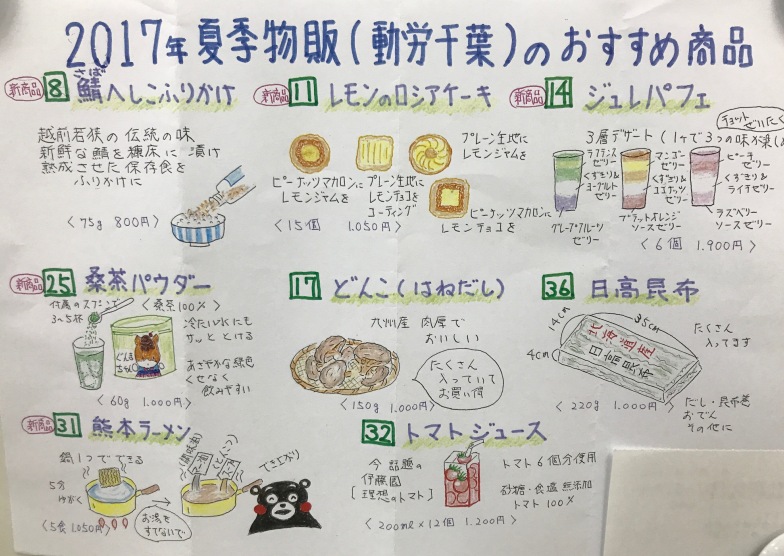 2017年夏季物販(動労千葉)のおすすめ商品
新商品 8 鯖へしこふりかけ
さば
越前若狭の伝統の味
新鮮な鯖を糠床に漬け
熟成させた保存食を
ふりかけに
〈75g 800円〉
新商品 11 レモンのロシアケーキ
プレーン生地に
レモンジャムを
ピーナッツマカロンに
レモンジャムを
プレーン生地に
レモンチョコを
コーティング
ピーナッツマカロンに
レモンチョコを
〈15個 1.050円〉
新商品 14 ジュレパフェ
チョット
ぜいたく
3層デザート(1ヶで3つの味が楽し
ラフランス
ゼリー
くずきり&
ヨーグルト
ゼリー
グレープフルーツ
ゼリー
マンゴー
ゼリー
くずきり
&ココナッツ
ゼリー
ブラッドオレンジ
ソースゼリー
ピーチ
ゼリー
くずきり
&ライチ
ゼリー
ラズベリー
ソースゼリー
〈6個 1.900円〉
新商品 25 桑茶パウダー
付属のスプーンで
3〜5杯
〈桑茶100%〉
冷たい水にも
サッととける
あざやかな緑色
くせなく
飲みやすい
ぐんま
ちゃん
〈60g 1.000円〉
17 どんこ(はねだし)
九州産 肉厚で
おいしい
たくさん
入っていて
お買い得
〈150g 1.000円〉
36 日高昆布
14cm
35cm
4cm
北海道産
日高昆布
たくさん
入ってます
〈220g 1.000円〉
だし・昆布巻
おでん
その他に
新商品 31 熊本ラーメン
鍋1つでできる
5分
ゆがく
お湯も
すてないで
とんこつ
でき上がり
〈5食 1.050円〉
32 トマトジュース
今話題の
伊藤園
[理想のトマト]
トマト6個分使用
砂糖・食塩無添加
トマト100%
〈200ml×12個 1.200円〉